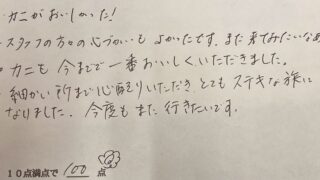 ・カニがおいしかった!
・スタッフの方々の心づかいもよかったです。また来てみたいなぁ
・カニも今までで一番おいしくいただきました。
・細かい所まで心配りいただき とてもステキな旅に
なりました。今度もまた行きたいです。
10点満点で 100 点